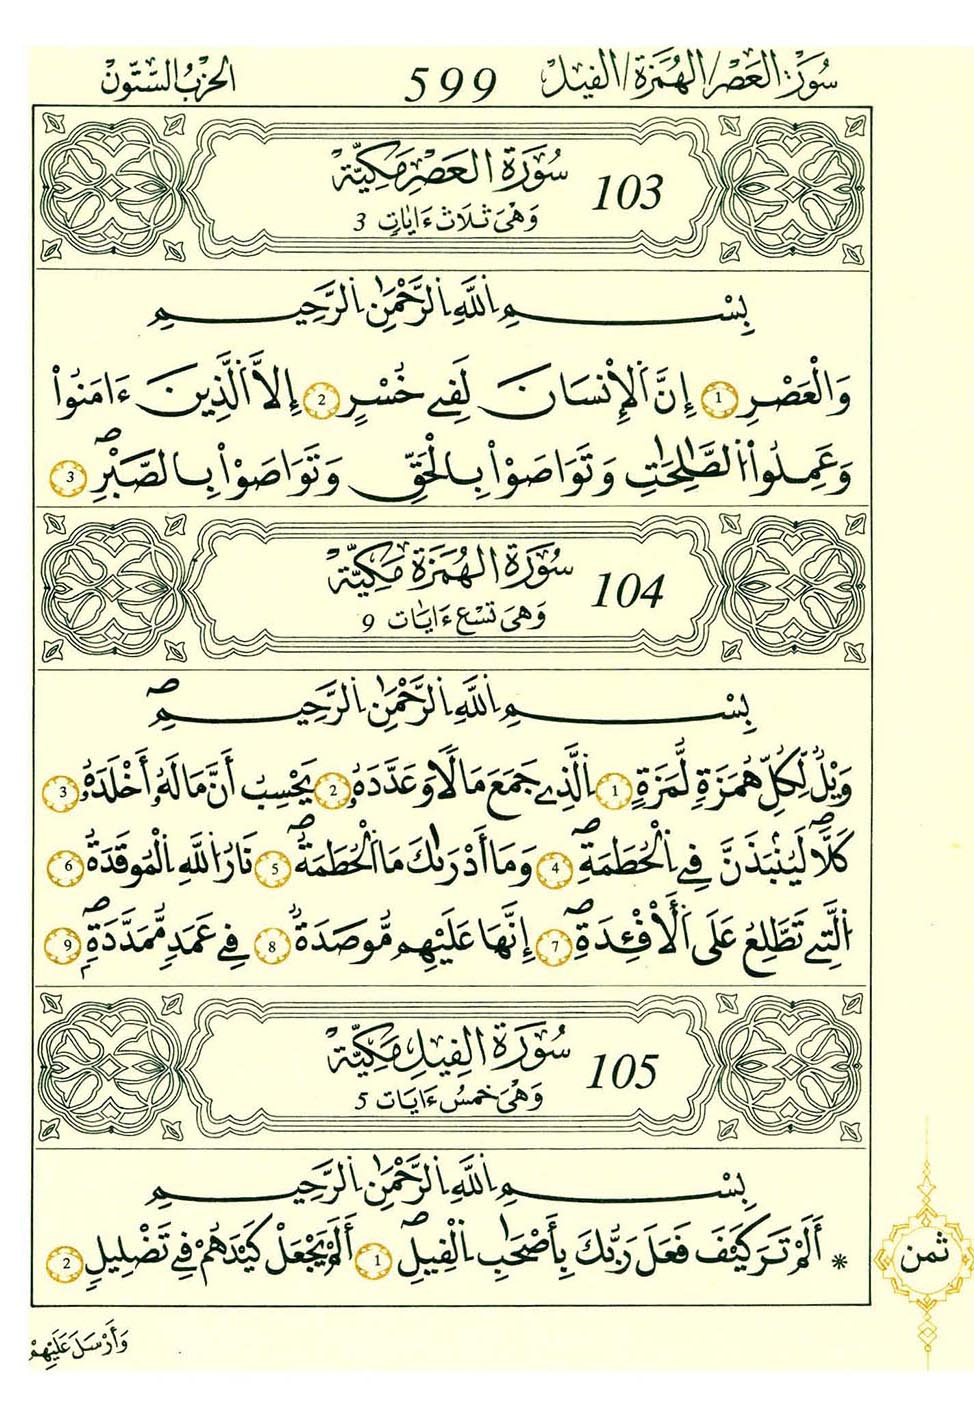 سُورَةُ العَصْرِ/الهُمَزَةِ/الفِيلِ 599 الحِزْبُ السِّتُّونْ
سُورَةُ العَصْرِ مَكِّيَّةٌ 103
وَهْيَ ثَلَاثُ ءَايَاتٍ 3
بِسْمِ اِللَّهِ اِلرَّحْمَٰنِ اِلرَّحِيمِ
وَالْعَصْرِ 1 إِنَّ اَلْإِنْسَانَ لَفِے خُسْرٍ 2 إِلَّا اَلَّذِينَ ءَامَنُواْ
وَعَمِلُواْ اُلصَّٰلِحَٰتِ وَتَوَاصَوْاْ بِالْحَقِّ وَتَوَاصَوْاْ بِالصَّبْرِۖ 3
سُورَةُ الهُمَزَةِ مَكِّيَّةٌ 104
وَهْيَ تِسْعُ ءَايَات 9
بِسْمِ اِللَّهِ اِلرَّحْمَٰنِ اِلرَّحِيمِۖ
وَيْلٌ لِّكُلِّ هُمَزَةٍ لُّمَزَةٍ 1 اِلَّذِے جَمَعَ مَالًا وَعَدَّدَهُۥ 2 يَحْسِبُ أَنَّ مَالَهُۥ أَخْلَدَهُۥ 3
كَلَّاۖ لَيُنۢبَذَنَّ فِے اِلْحُطَمَةِۖ 4 وَمَا أَدْرَىٰكَ مَا اَلْحُطَمَةُۖ 5 نَارُ اُللَّهِ اِلْمُوقَدَةُ 6
اُلَّتِے تَطَّلِعُ عَلَى اَلْأَفْـِٕدَةِۖ 7 إِنَّهَا عَلَيْهِم مُّوصَدَةٌ 8 فِے عَمَدٍ مُّمَدَّدَةٍۖ 9
سُورَةُ الفِيلِ مَكِّيَّةٌ 105
وَهْيَ خَمْسُ ءَايَات 5
بِسْمِ اِللَّهِ اِلرَّحْمَٰنِ اِلرَّحِيمِ
* أَلَمْ تَرَ كَيْفَ فَعَلَ رَبُّكَ بِأَصْحَٰبِ اِلْفِيلِۖ 1 أَلَمْ يَجْعَلْ كَيْدَهُمْ فِے تَضْلِيلٍ 2
ثمن
وَأَرْسَلَ عَلَيْهِمْ